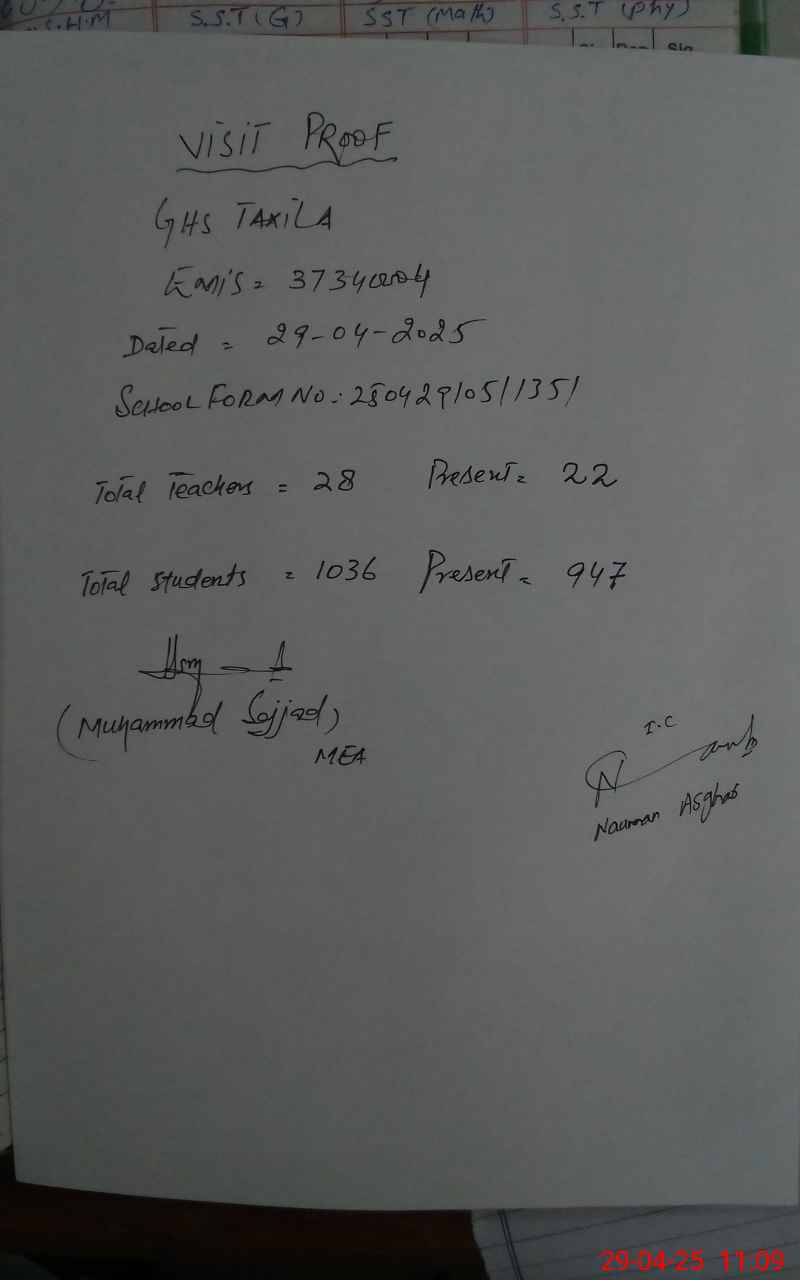 S.H.M S.S.T (G) SST (Math) S.S.T (Phy)
Sig
VISIT PROOF
GHS TAXILA
Emis = 37340004
Dated = 29-04-2025
SCHOOL FORM NO:- 25042910511351
Total Teachers = 28 Present = 22
Total Students = 1036 Present = 947
(Muhammad Sajjad)
MEA
I.C
Nauman Asghar
29-04-25 11:09